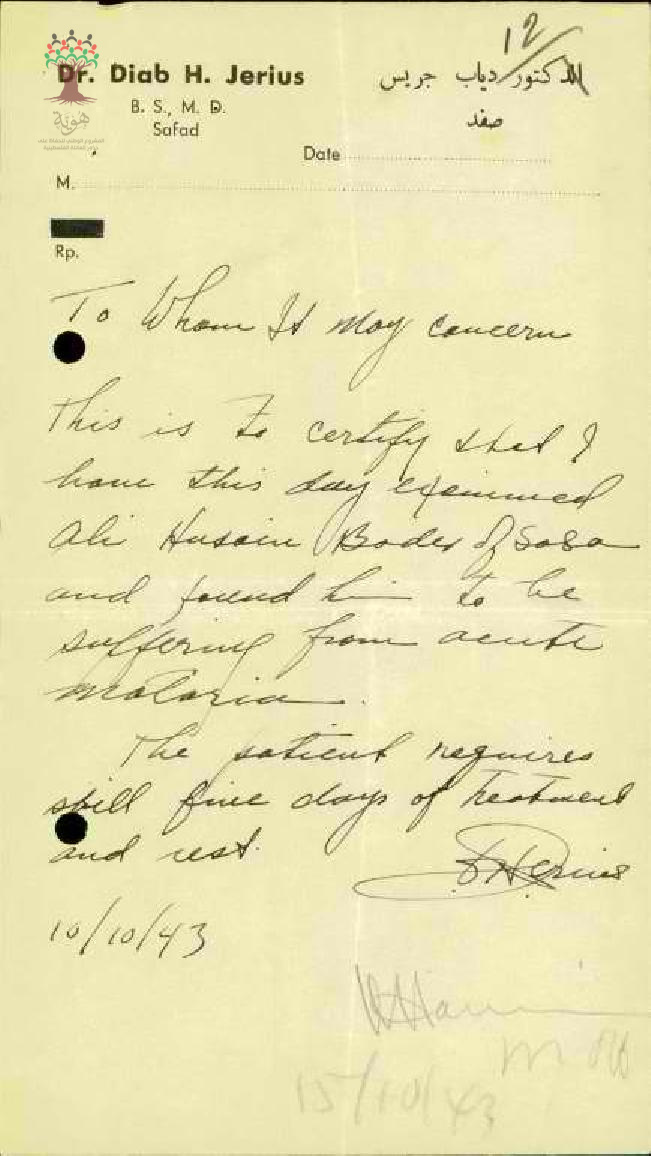 12
Dr. Diab H. Jerius
الدكتور دياب جريس
B. S., M. D.
Safad
صفد
هوية
Date
M.
Rp.
To Whom It May Concern
This is to certify that I
have this day examined
Ali Husain Bader of Sasa
and found him to be
suffering from acute
malaria.
The patient requires
still five days of treatment
and rest.
DHJerius
10/10/43
15/10/43